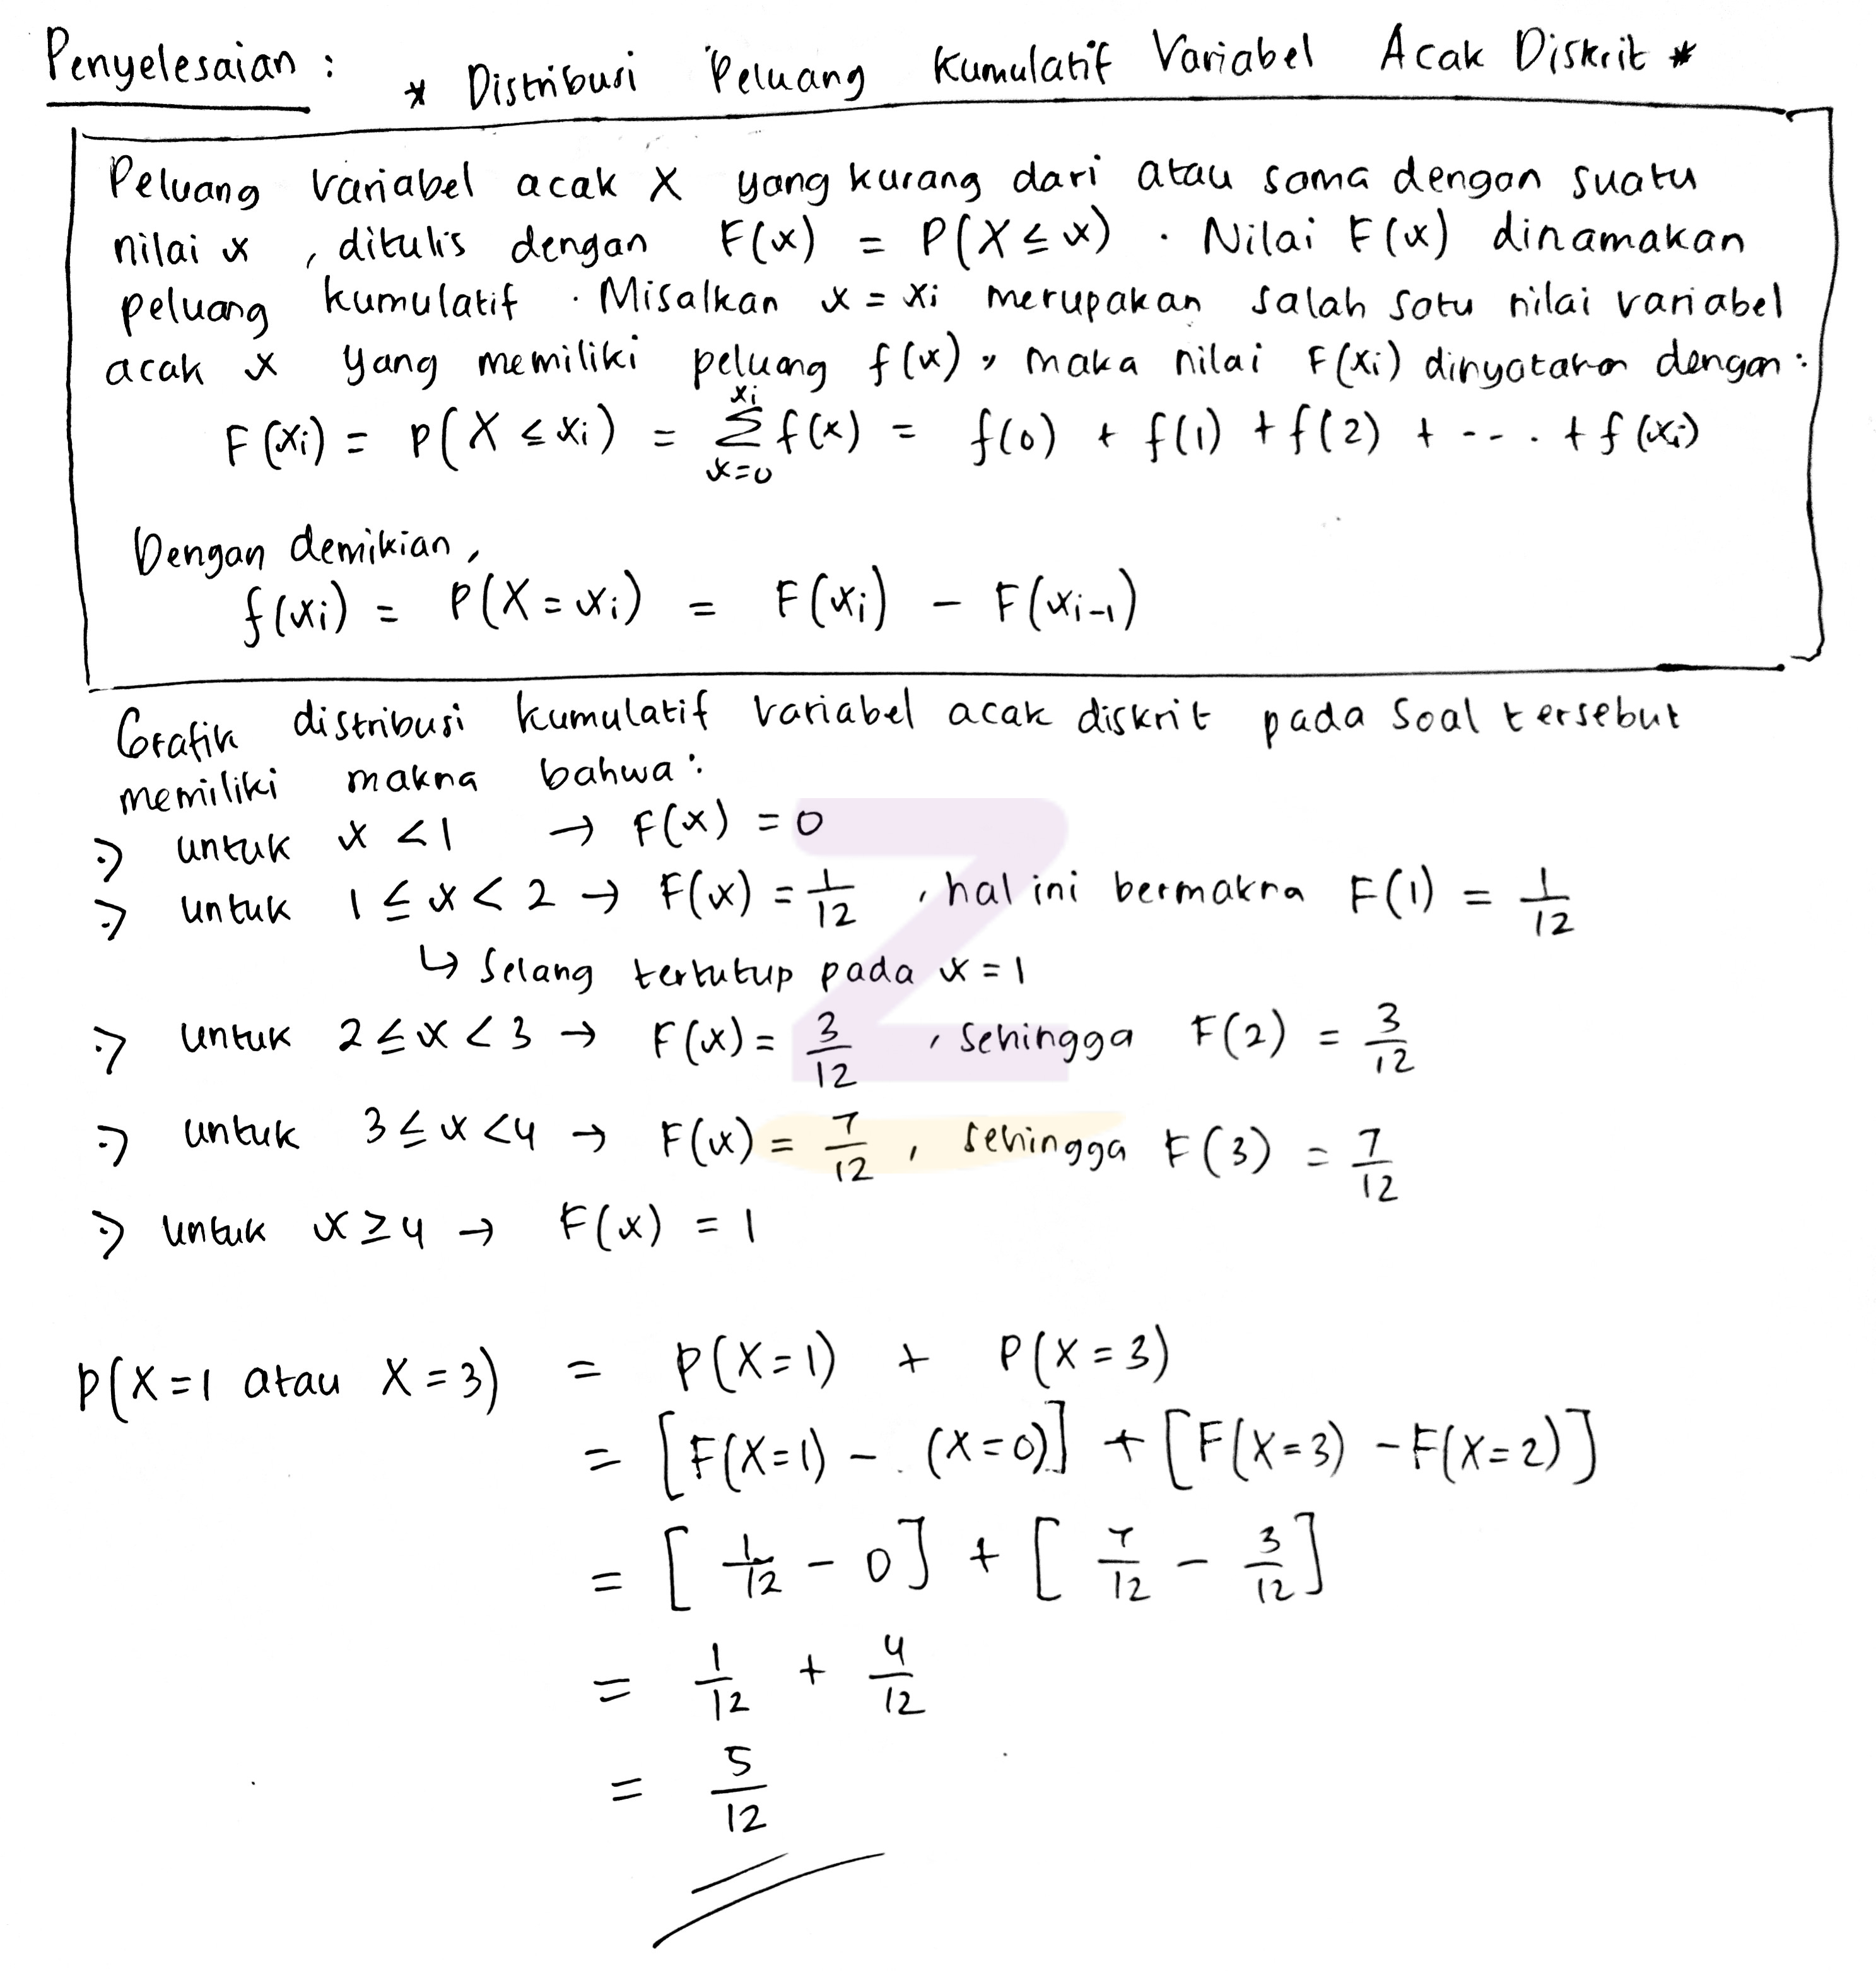 Penyelesaian : * Distribusi Peluang Kumulatif Variabel Acak Diskrit *
Peluang variabel acak X yang kurang dari atau sama dengan suatu
nilai x , ditulis dengan F(x) = P(X ≤ x) . Nilai F(x) dinamakan
peluang kumulatif . Misalkan x = xi merupakan salah satu nilai variabel
acak x yang memiliki peluang f(x) , maka nilai F(xi) dinyatakan dengan :
F(xi) = P(X ≤ xi) = ∑_{x=0}^{xi} f(x) = f(0) + f(1) + f(2) + --- . + f(xi)
Dengan demikian ,
f(xi) = P(X = xi) = F(xi) - F(xi-1)
Grafik distribusi kumulatif variabel acak diskrit pada soal tersebut
memiliki makna bahwa :
:) untuk x < 1 → F(x) = 0
:) untuk 1 ≤ x < 2 → F(x) = 1/12 , hal ini bermakna F(1) = 1/12
↳ Selang tertutup pada x = 1
:) untuk 2 ≤ x < 3 → F(x) = 3/12 , sehingga F(2) = 3/12
:) untuk 3 ≤ x < 4 → F(x) = 7/12 , sehingga F(3) = 7/12
:) untuk x ≥ 4 → F(x) = 1
P(X = 1 atau X = 3) = P(X = 1) + P(X = 3)
= [F(X = 1) - (X = 0)] + [F(X = 3) - F(X = 2)]
= [1/12 - 0] + [7/12 - 3/12]
= 1/12 + 4/12
= 5/12